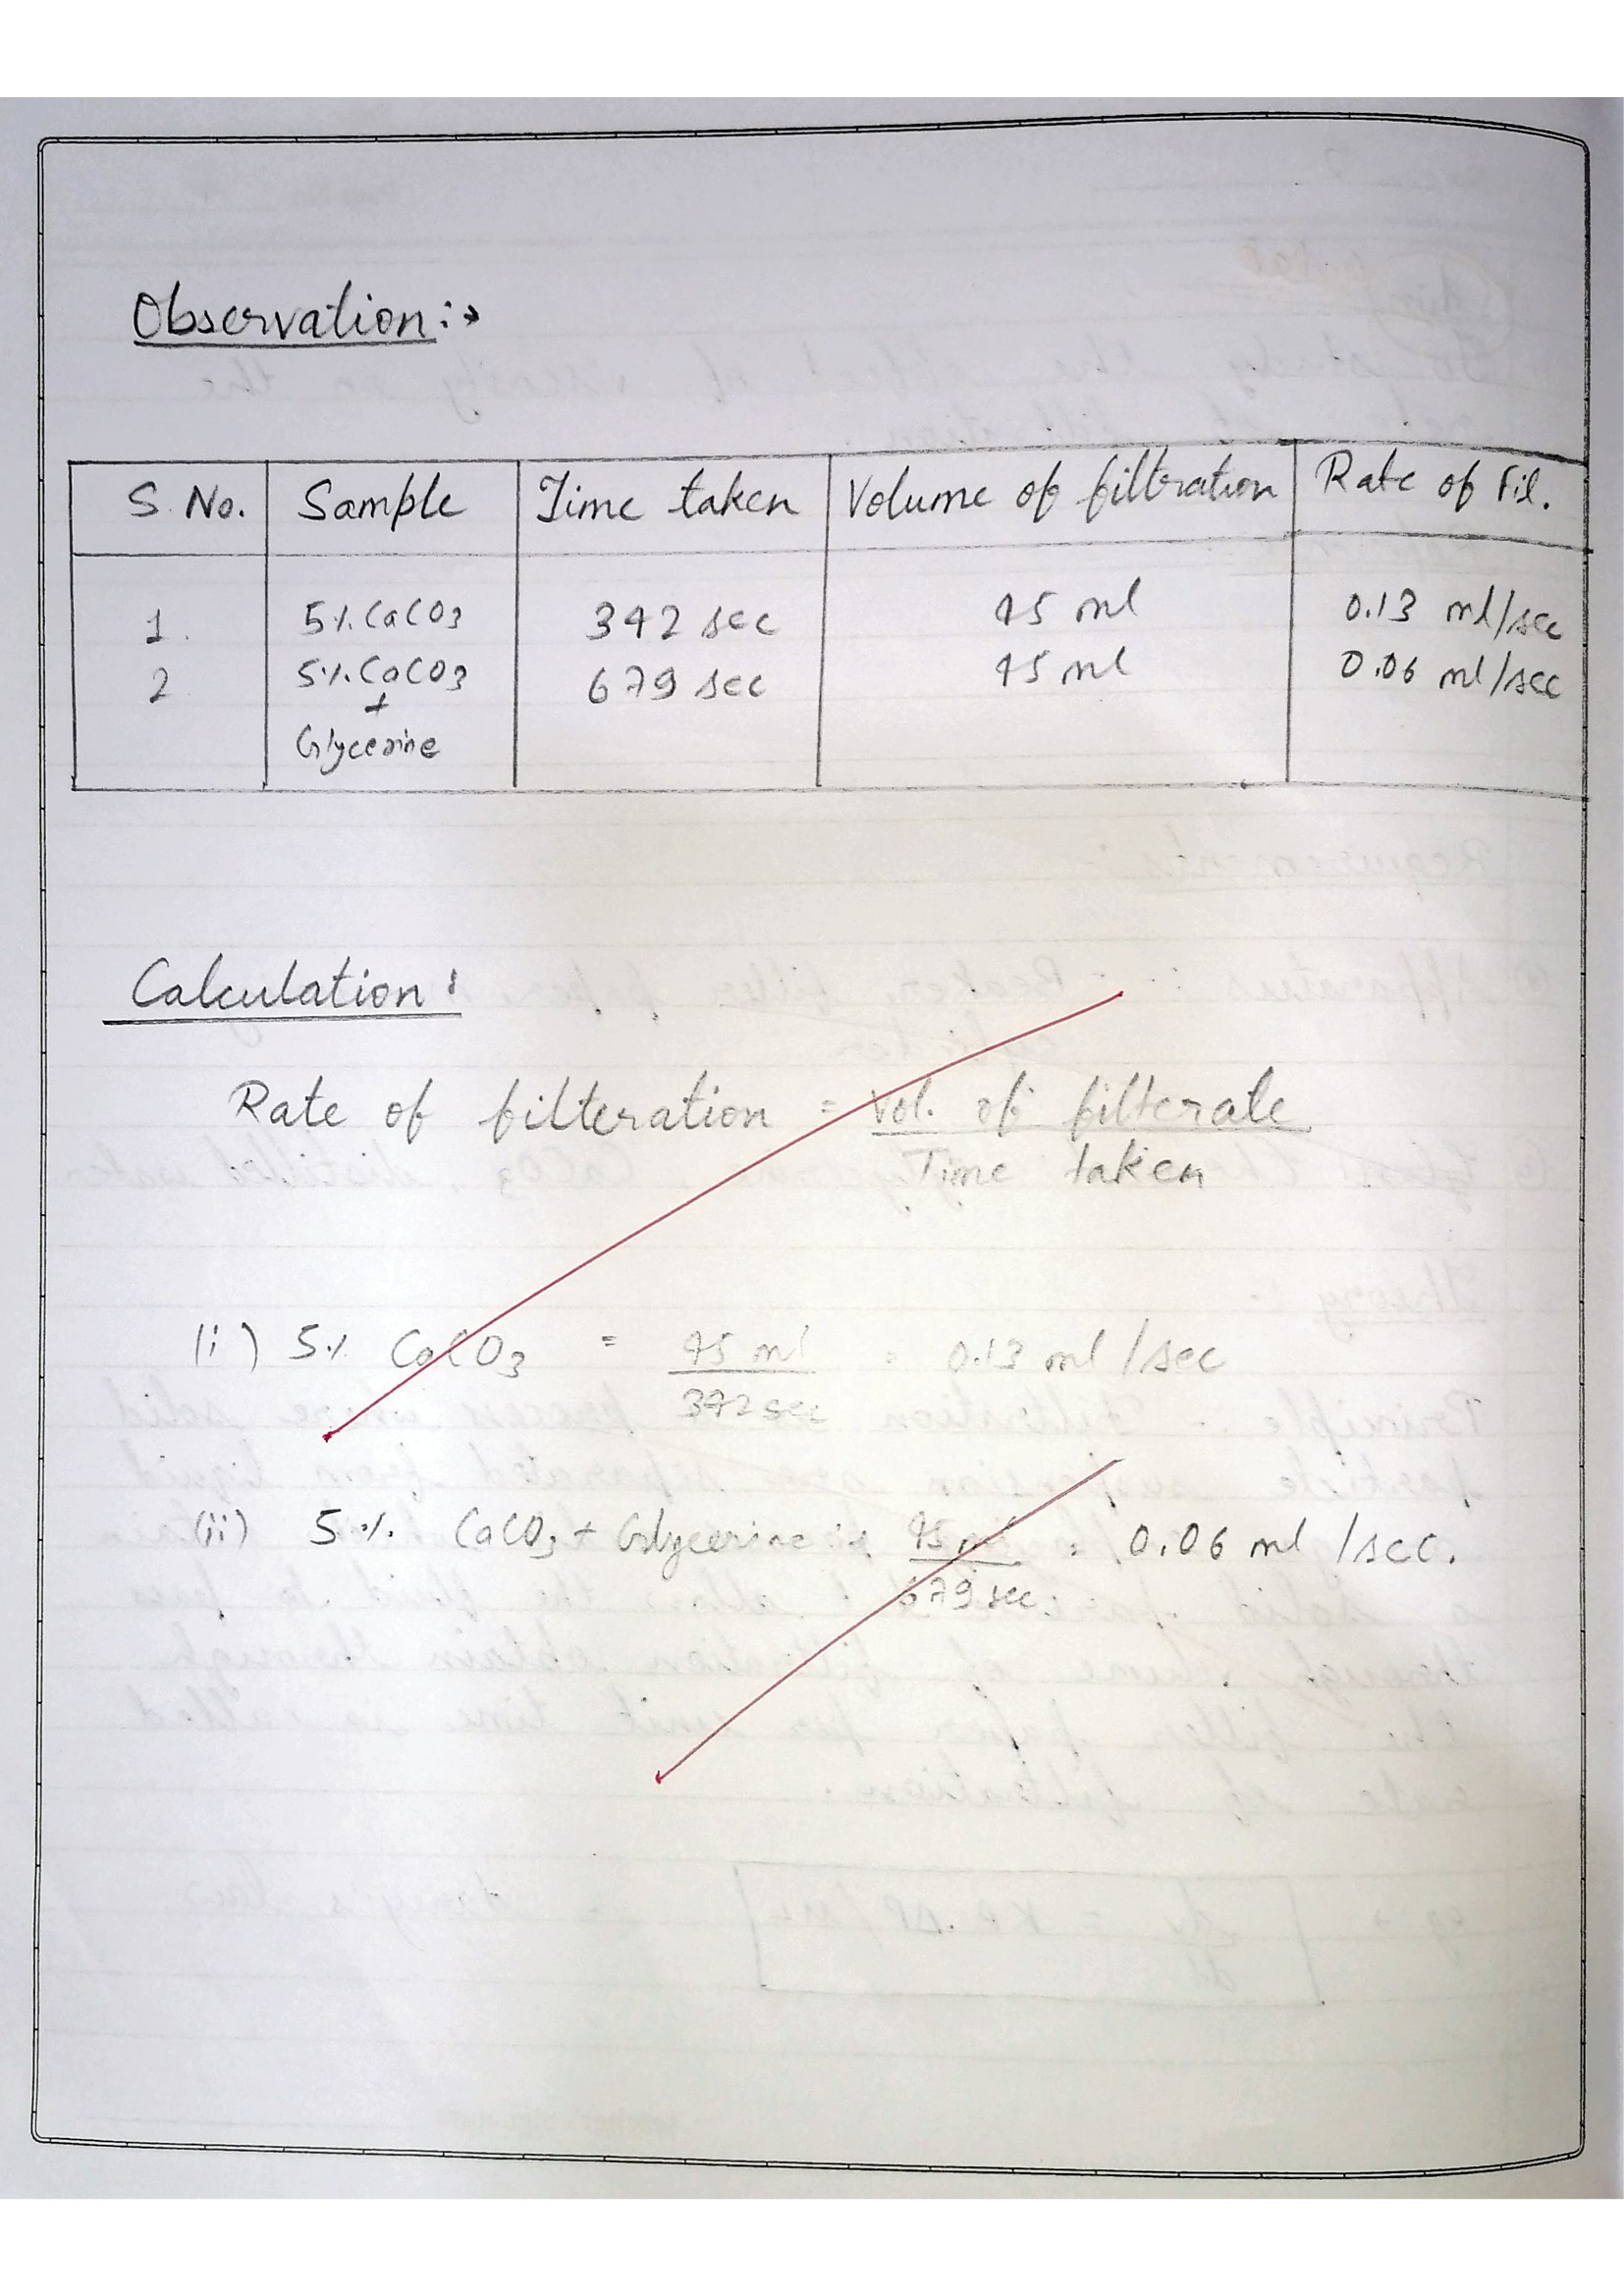 Observation :→
S. No. Sample Time taken Volume of filtration Rate of Fil.
1. 5% CaCO3 342 sec 45 ml 0.13 ml/sec
2 5% CaCO3 679 sec 45 ml 0.06 ml/sec
+
Glycerine
Calculation :
Rate of filteration = Vol. of filterate
Time taken
(i) 5% CaCO3 = 45 ml = 0.13 ml /sec
342 sec
(ii) 5% CaCO3 + Glycerine = 45 ml = 0.06 ml /sec.
679 sec